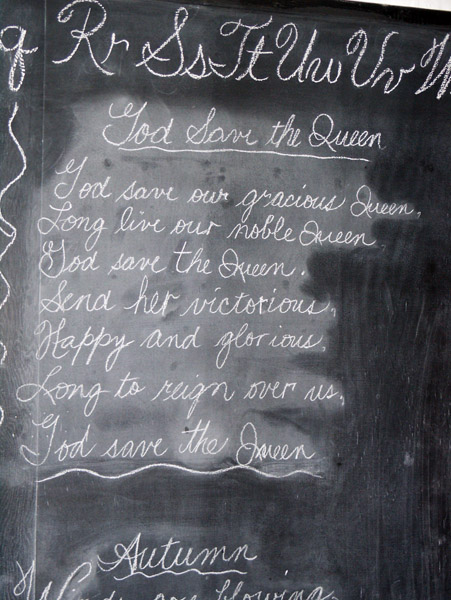 q Rr Ss Tt Uu Vv W
God Save the Queen
God save our gracious Queen,
Long live our noble Queen
God save the Queen.
Send her victorious,
Happy and glorious,
Long to reign over us,
God save the Queen
Autumn
blowing,